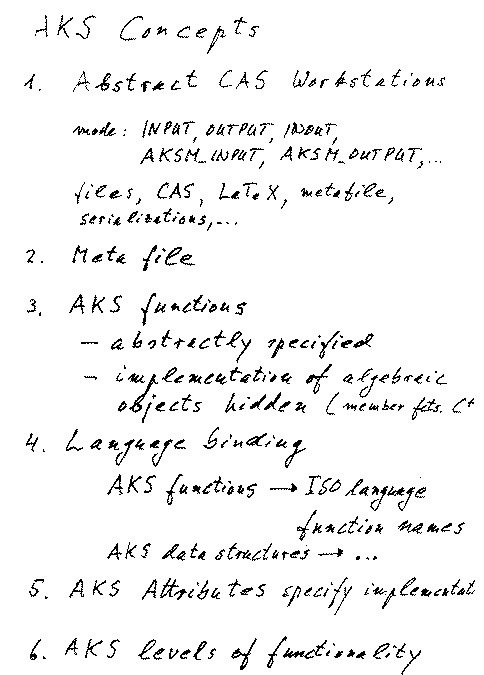 AKS Concepts
1. Abstract CAS Workstations
mode: INPUT, OUTPUT, INOUT,
AKSM_INPUT, AKSM_OUTPUT,...
files, CAS, LaTeX, metafile,
serializations,...
2. Meta file
3. AKS functions
- abstractly specified
- implementation of algebraic
objects hidden (member fcts. C+
4. Language binding
AKS functions → ISO language
function names
AKS data structures → ...
5. AKS Attributes specify implementat
6. AKS levels of functionality